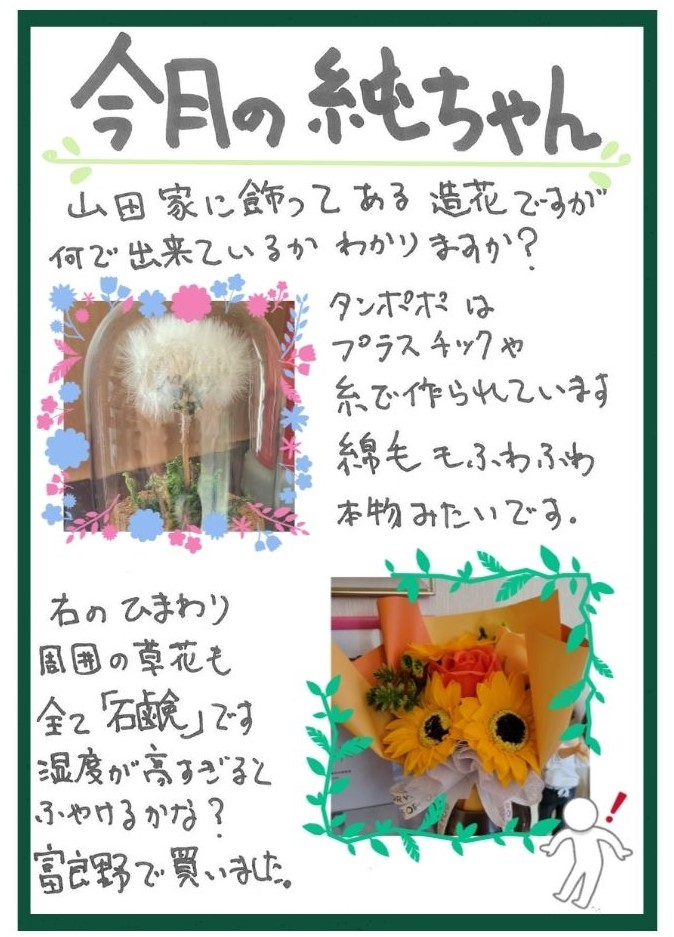 今月の純ちゃん
山田家に飾ってある造花ですが
何で出来ているかわかりますか?
タンポポは
プラスチックや
糸で作られています
綿毛もふわふわ
本物みたいです。
右のひまわり
周囲の草花も
全て「石鹸」です
湿度が高すぎると
ふやけるかな?
富良野で買いました。